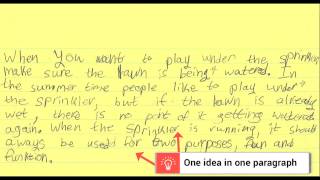 When You want to play under the sprinkler
make sure the lawn is being watered. In
the summer time people like to play under
the sprinkler, but if the lawn is already
wet, there is no point of it getting watered
again. When the sprinkler is running, it should
always be used for two purposes, fun and
function.
One idea in one paragraph